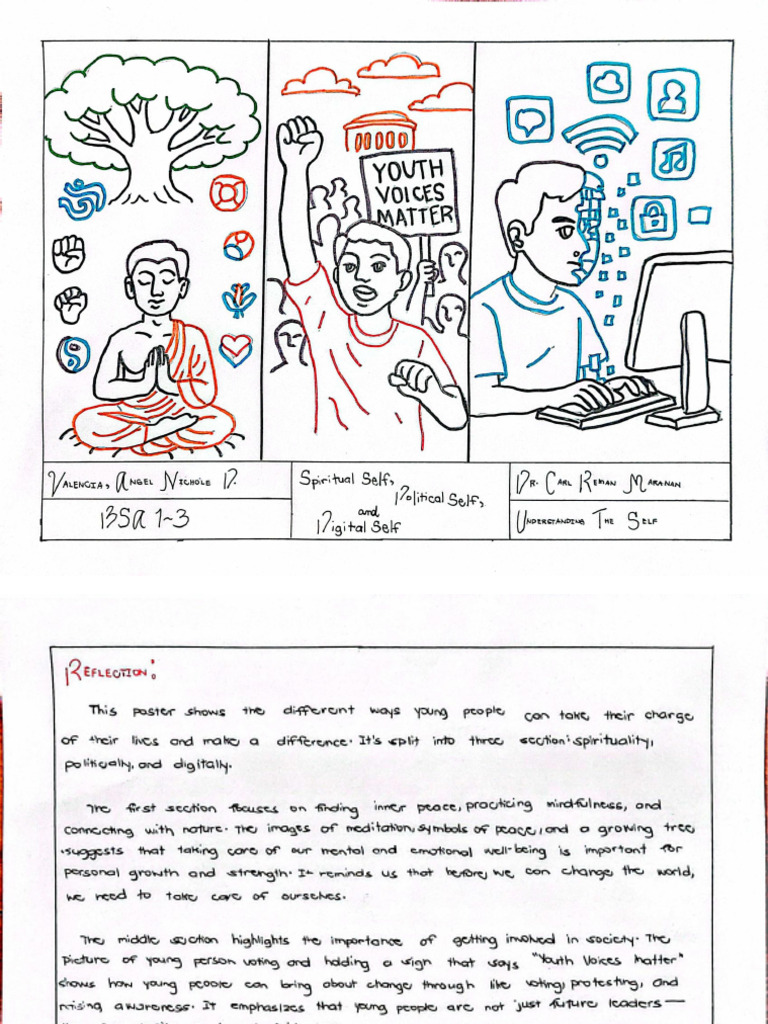 YOUTH
VOICES
MATTER
Valencia, Angel Nichole D.
BSA 1-3
Spiritual Self,
Political Self,
and
Digital Self
Dr. Carl Rehan Maranan
Understanding The Self
Reflection:
This poster shows the different ways young people can take their charge
of their lives and make a difference. It's split into three section: spirituality,
politically, and digitally.
The first section focuses on finding inner peace, practicing mindfulness, and
connecting with nature. The images of meditation, symbols of peace, and a growing tree
suggests that taking care of our mental and emotional well-being is important for
personal growth and strength. It reminds us that before, we can change the world,
we need to take care of ourselves.
The middle section highlights the importance of getting involved in society. The
picture of young person voting and holding a sign that says "Youth Voices Matter"
shows how young people can bring about change through like voting, protesting, and
raising awareness. It emphasizes that young people are not just future leaders—